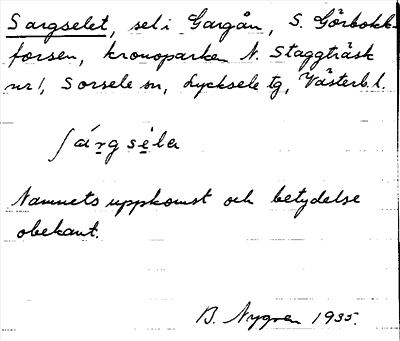 Sargselet, sel i Gargån, S. Görbokk-
forsen, kronoparken N. Staggträsk
nr 1, Sorsele sn, Lycksele tg, Västerb. l.
ʃárgsèla
Namnets uppkomst och betydelse
obekant.
B. Nygren 1935.